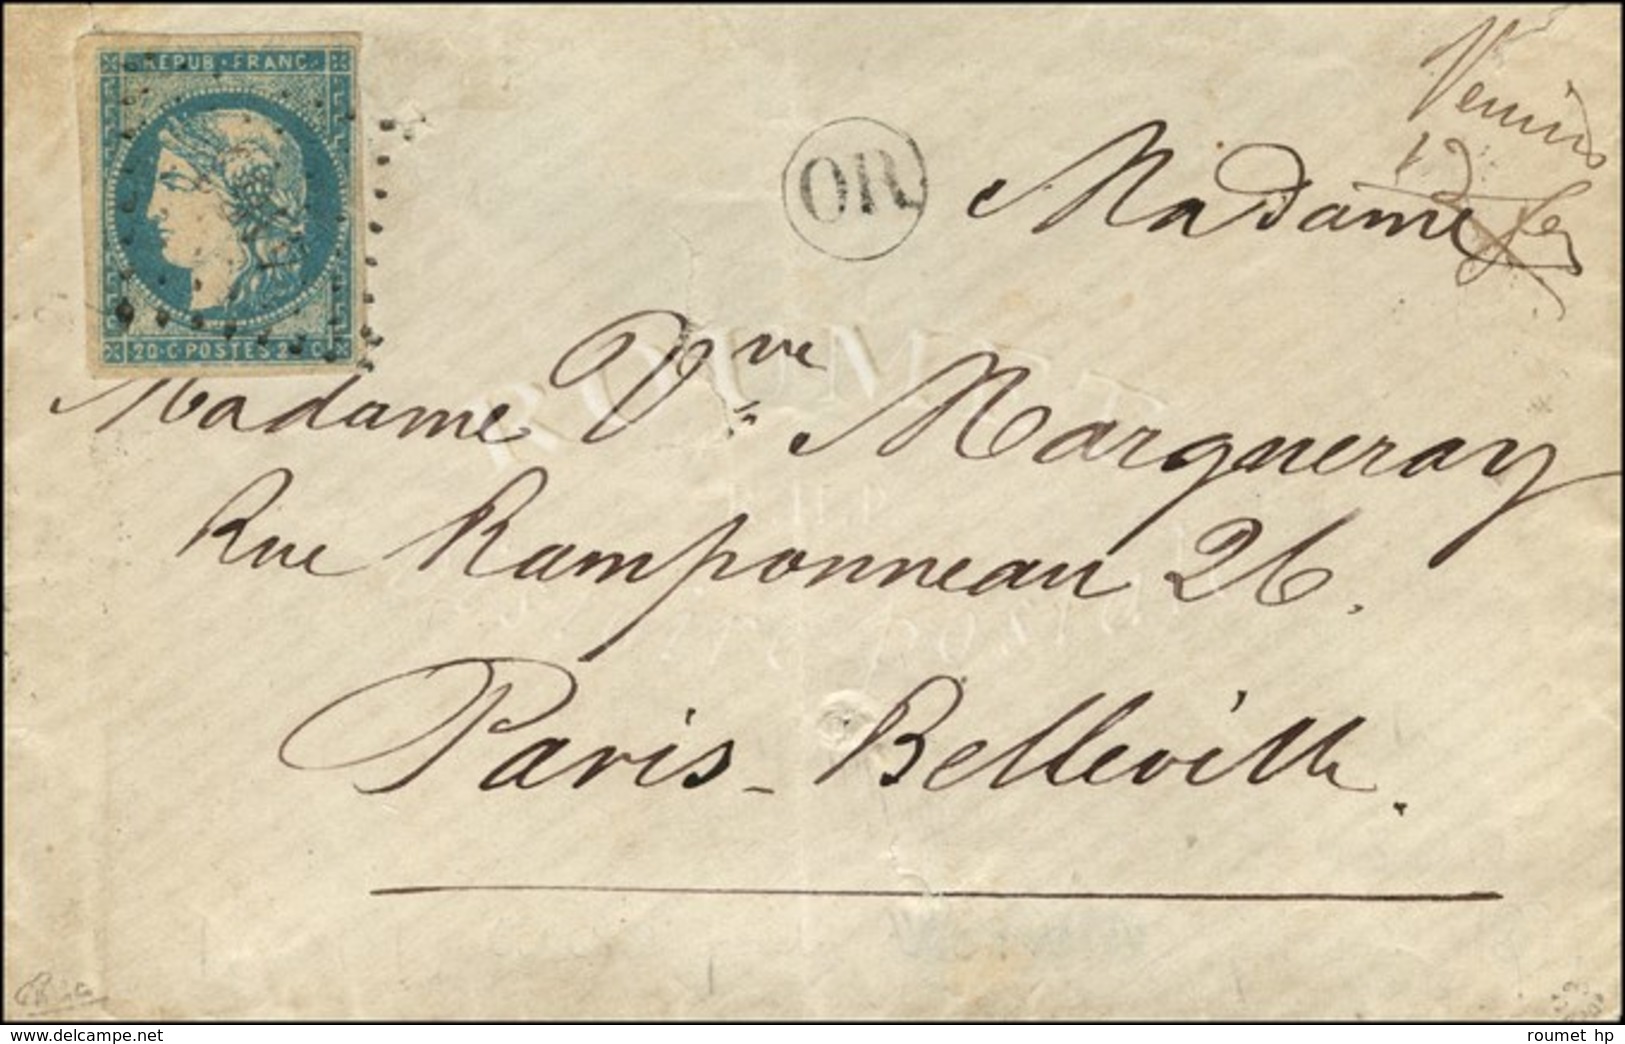 REPUB·FRANC
20·C·POSTES·20·C
OR
Madame
Madame Vve Marqueray
Rue Ramponneau 26.
Paris-Belleville.
ROUMET
roumet hp